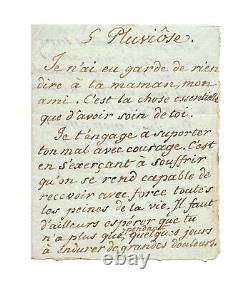 5 Pluviôse.
Je n'ai eu garde de rien
dire à ta maman, mon
ami. C'est la chose essentielle
que d'avoir soin de toi.
Je t'engage à suporter
ton mal avec courage. C'est
en s'exerçant à souffrir
qu'on se rend capable de
recevoir avec force toutes
les peines de la vie. Il faut
d'ailleurs espérer que tu
n'a plus que pendant quelques jours
à Endurer de grandes douleurs.